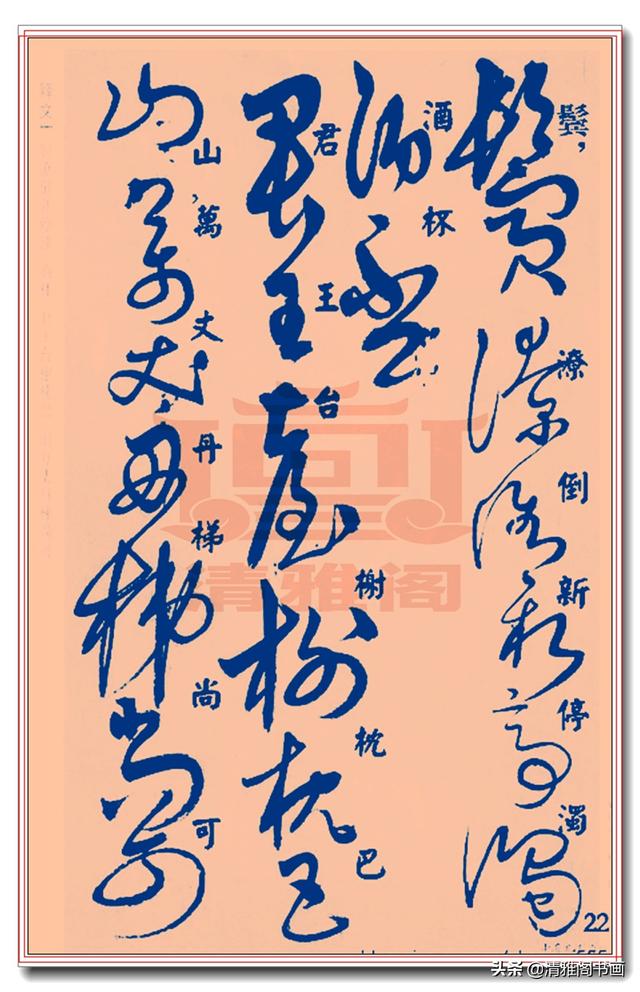 鬢，潦倒新停濁
酒杯
君王台榭枕巴
山萬丈丹梯尚可
清雅阁
22
头条 @清雅阁书画